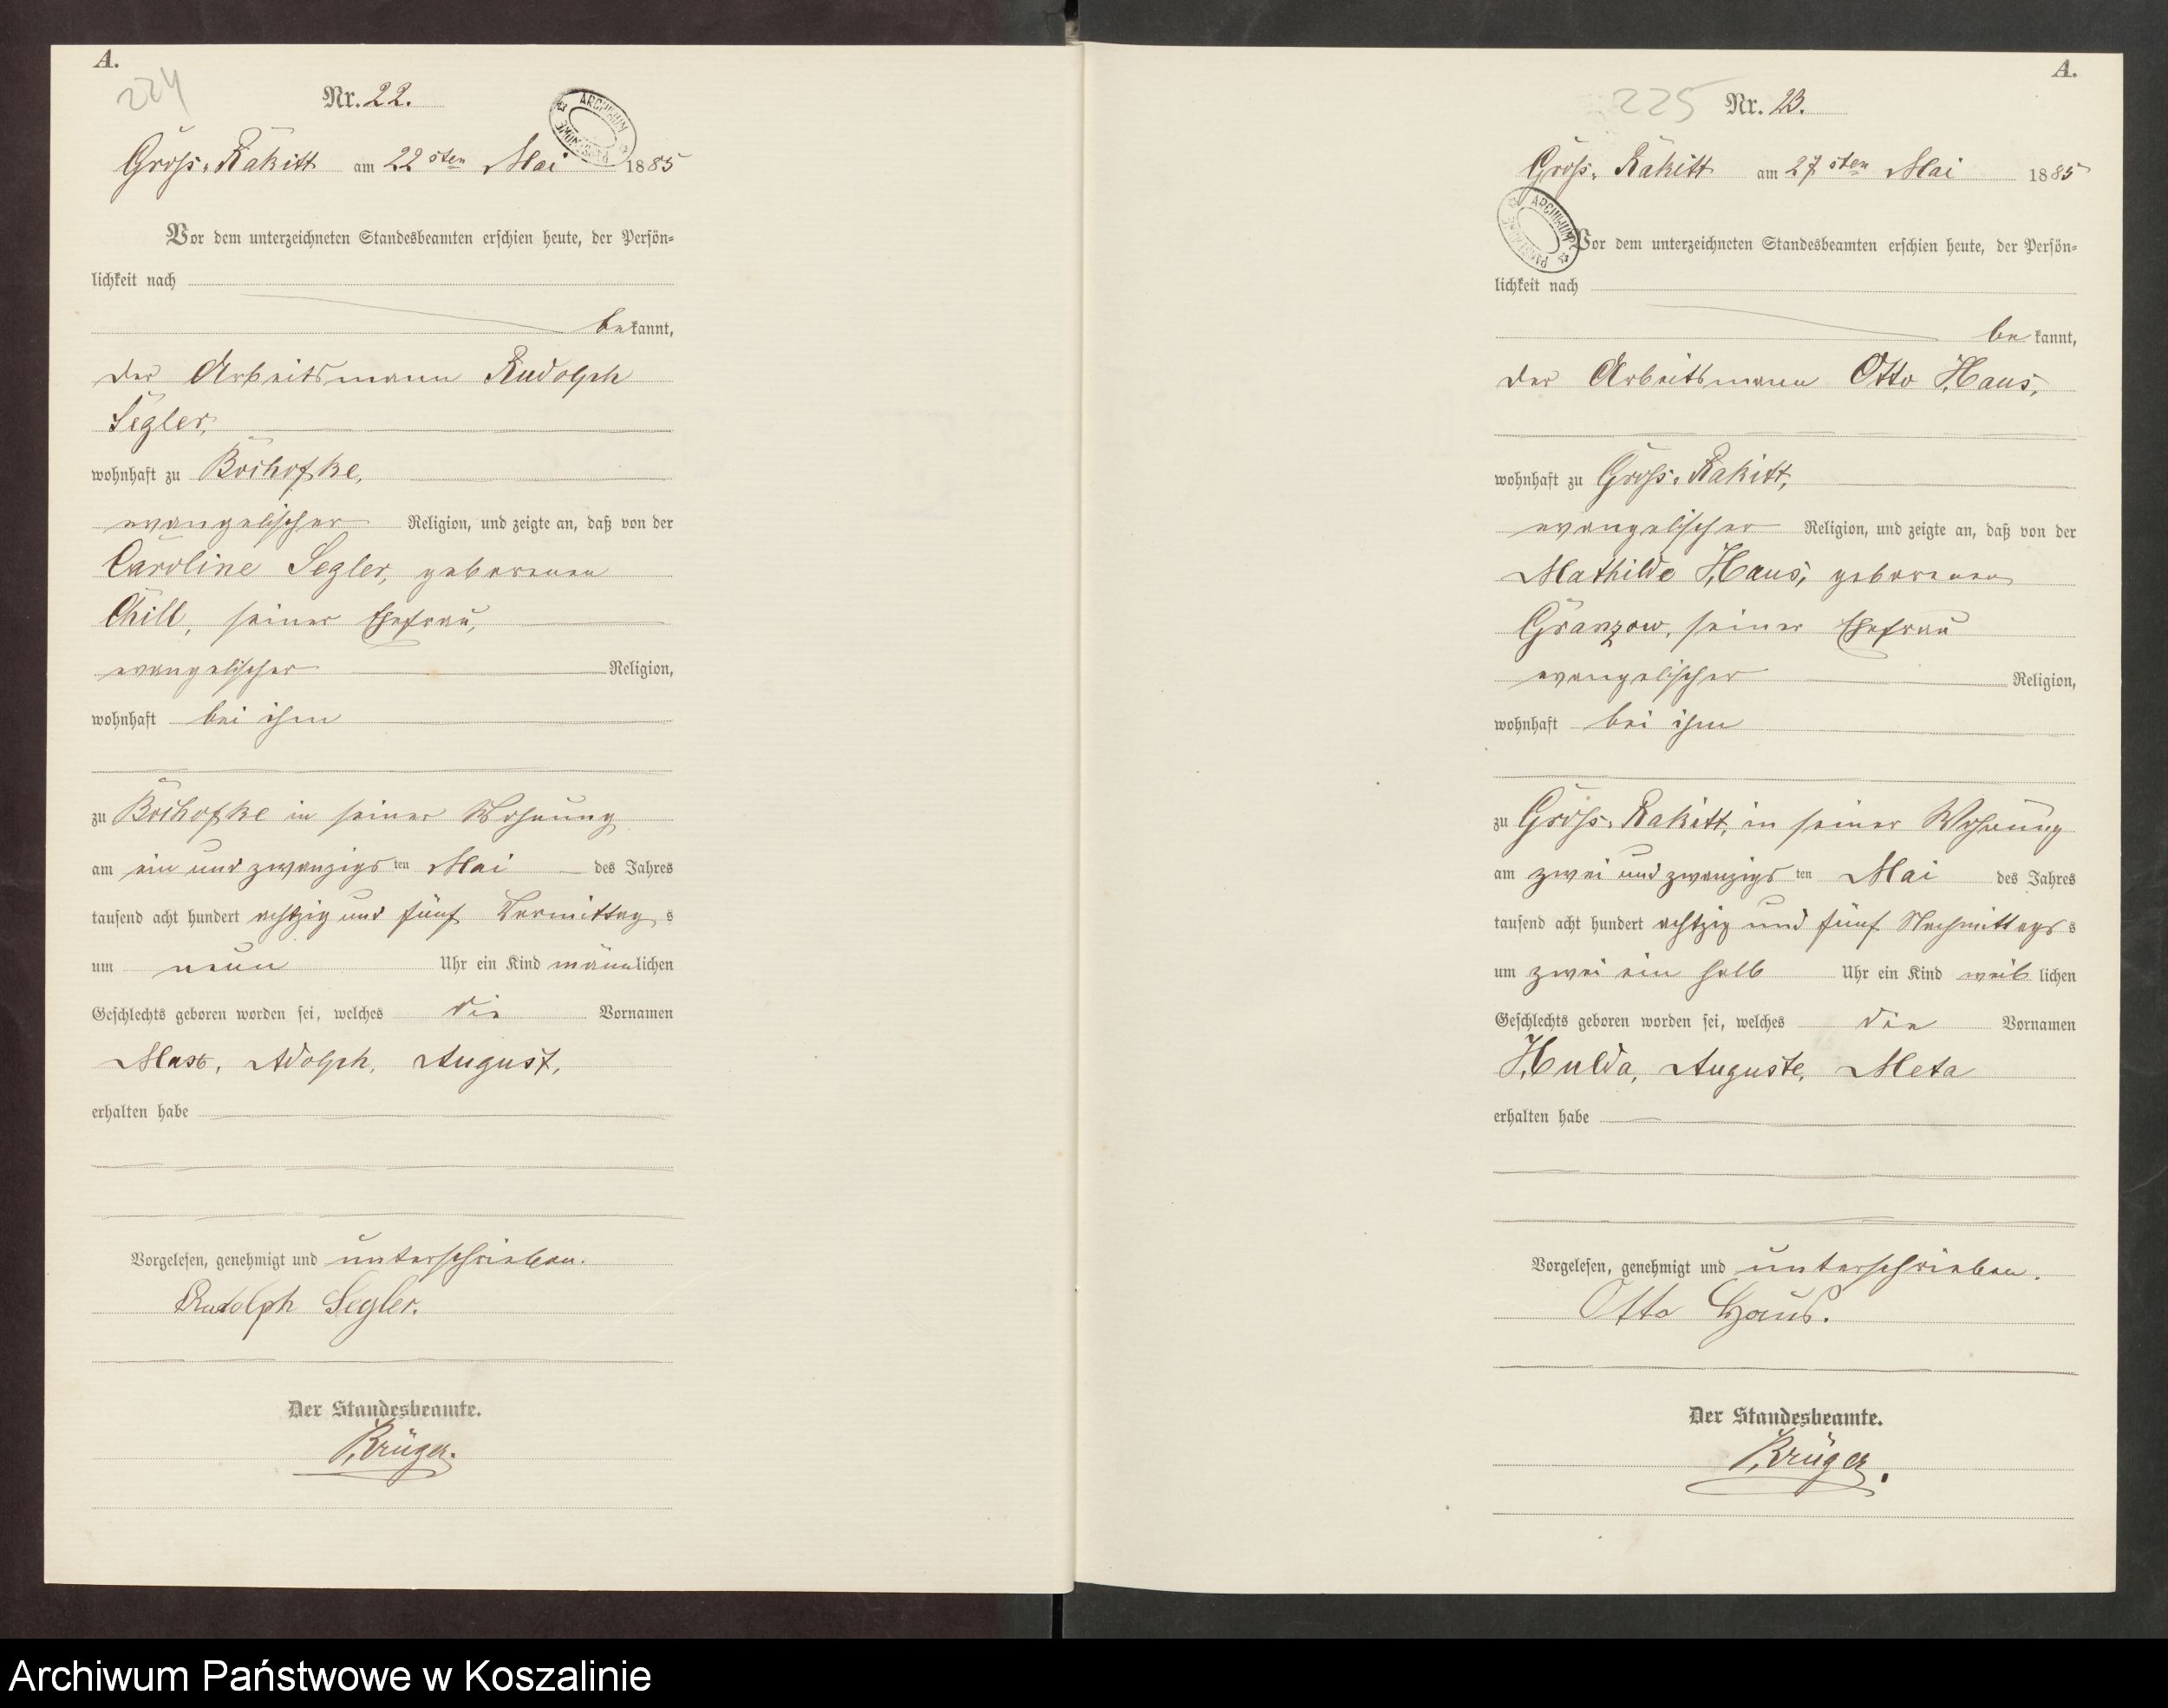 A.
224
Nr. 22.
ARCHIWUM PAŃSTWOWE
Gross-Rakitt am 22sten Mai 1885
Vor dem unterzeichneten Standesbeamten erschien heute, der Persön-
lichkeit nach
bekannt,
der Arbeitsmann Rudolph
Segler,
wohnhaft zu
evangelischer Religion, und zeigte an, daß von der
Caroline Segler, geborenen
seiner Ehefrau,
evangelischer Religion,
wohnhaft bei ihm
zu in seiner Wohnung
am ein und zwanzigsten Mai des Jahres
tausend acht hundert achtzig und fünf Vormittags
um neun Uhr ein Kind männlichen
Geschlechts geboren worden sei, welches die Vornamen
Max, Adolph, August,
erhalten habe
Vorgelesen, genehmigt und unterschrieben.
Rudolph Segler.
Der Standesbeamte.
Krüger.
A.
225
Nr. 23.
Gross-Rakitt am 27sten Mai 1885
ARCHIWUM PAŃSTWOWE
Vor dem unterzeichneten Standesbeamten erschien heute, der Persön-
lichkeit nach
bekannt,
der Arbeitsmann Otto Haus,
wohnhaft zu Gross-Rakitt,
evangelischer Religion, und zeigte an, daß von der
Mathilde Haus, geborenen
Granzow, seiner Ehefrau
evangelischer Religion,
wohnhaft bei ihm
zu Gross-Rakitt, in seiner Wohnung
am zwei und zwanzigsten Mai des Jahres
tausend acht hundert achtzig und fünf Nachmittags
um zwei ein halb Uhr ein Kind weiblichen
Geschlechts geboren worden sei, welches die Vornamen
Hulda, Auguste, Meta
erhalten habe
Vorgelesen, genehmigt und unterschrieben.
Otto Haus.
Der Standesbeamte.
Krüger.
Archiwum Państwowe w Koszalinie